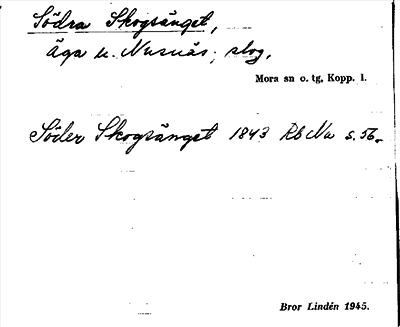 Södra Skogsänget,
äga u. Nusnäs, skog.
Mora sn o. tg, Kopp. l.
Söder Skogsänget 1843 Rb Nu s. 56.
Bror Lindén 1945.